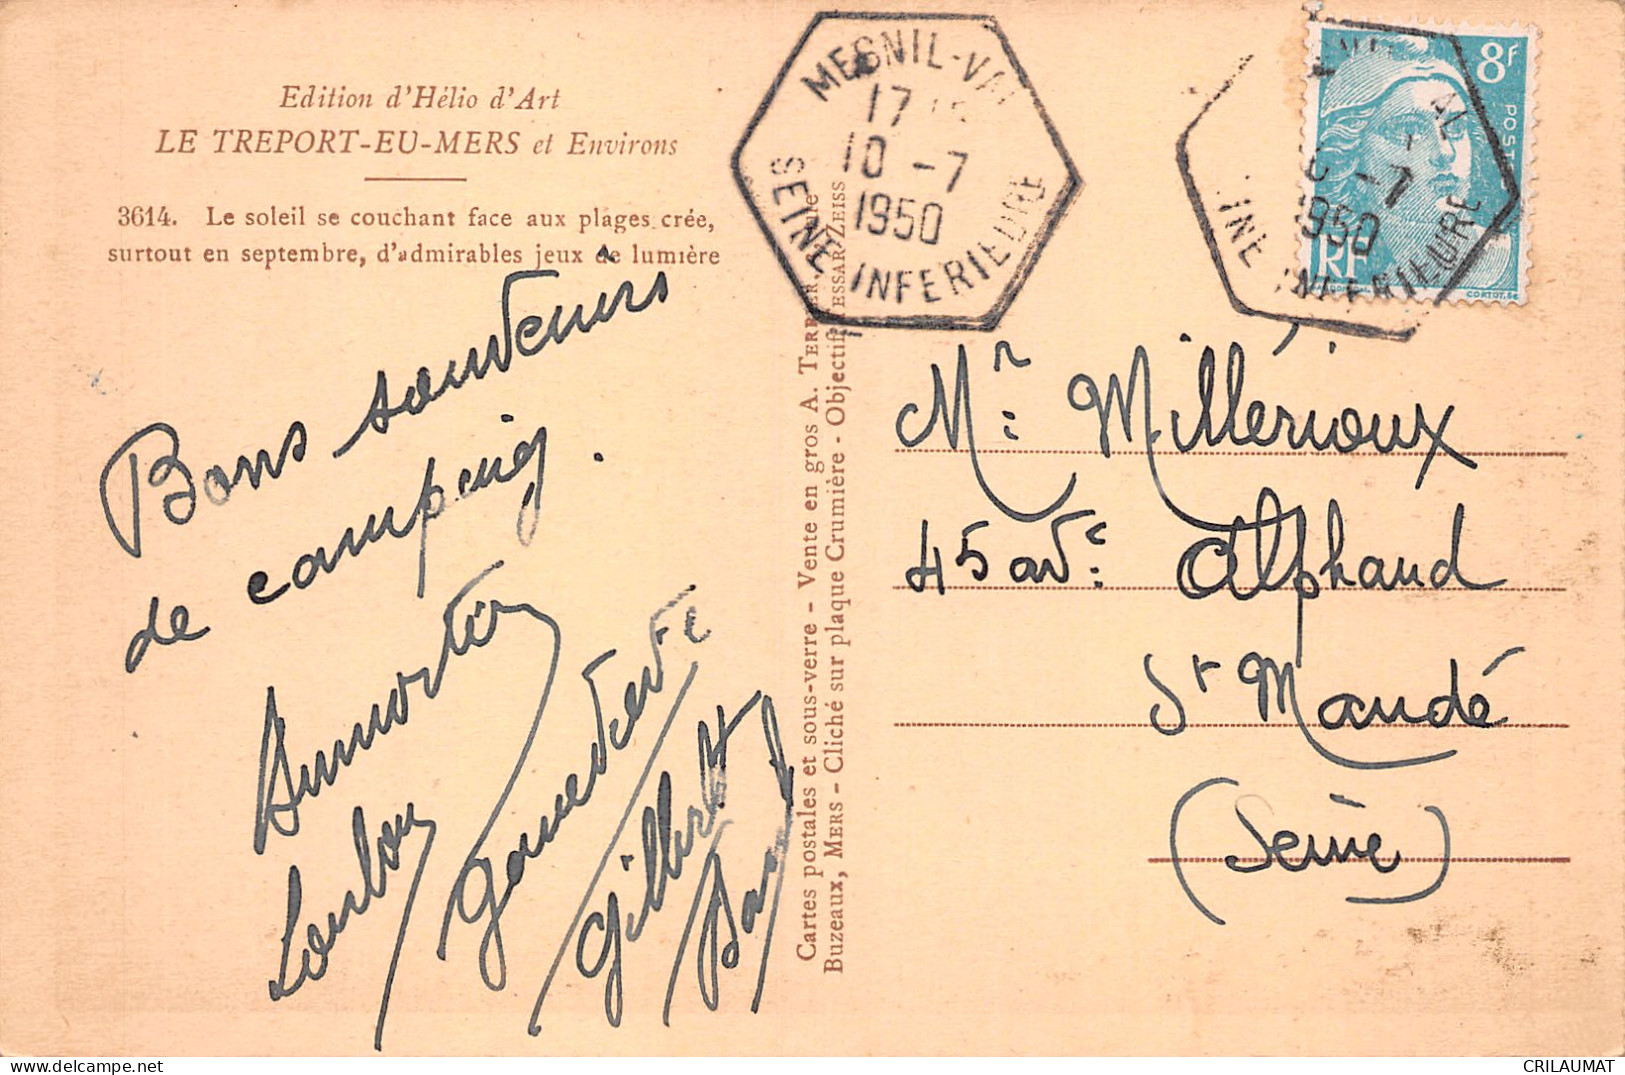 Edition d'Hélio d'Art
LE TREPORT-EU-MERS et Environs
3614. Le soleil se couchant face aux plages crée,
surtout en septembre, d'admirables jeux de lumière
Bons souvenirs
de camping.
Geneviève
Gilbert
Cartes postales et sous-verre - Vente en gros A. TERRIER, rue
Buzeaux, MERS - Cliché sur plaque Crumière - Objectif TESSAR-ZEISS
MESNIL-VAL
17
10 -7
1950
SEINE INFERIEURE
AL
-7
1950
INE INFERIEURE
8F
POSTES
RF
CORTOT, Sc
Mr: Millérioux
45 ave: Alphand
St Mandé
(Seine)
CRILAUMAT